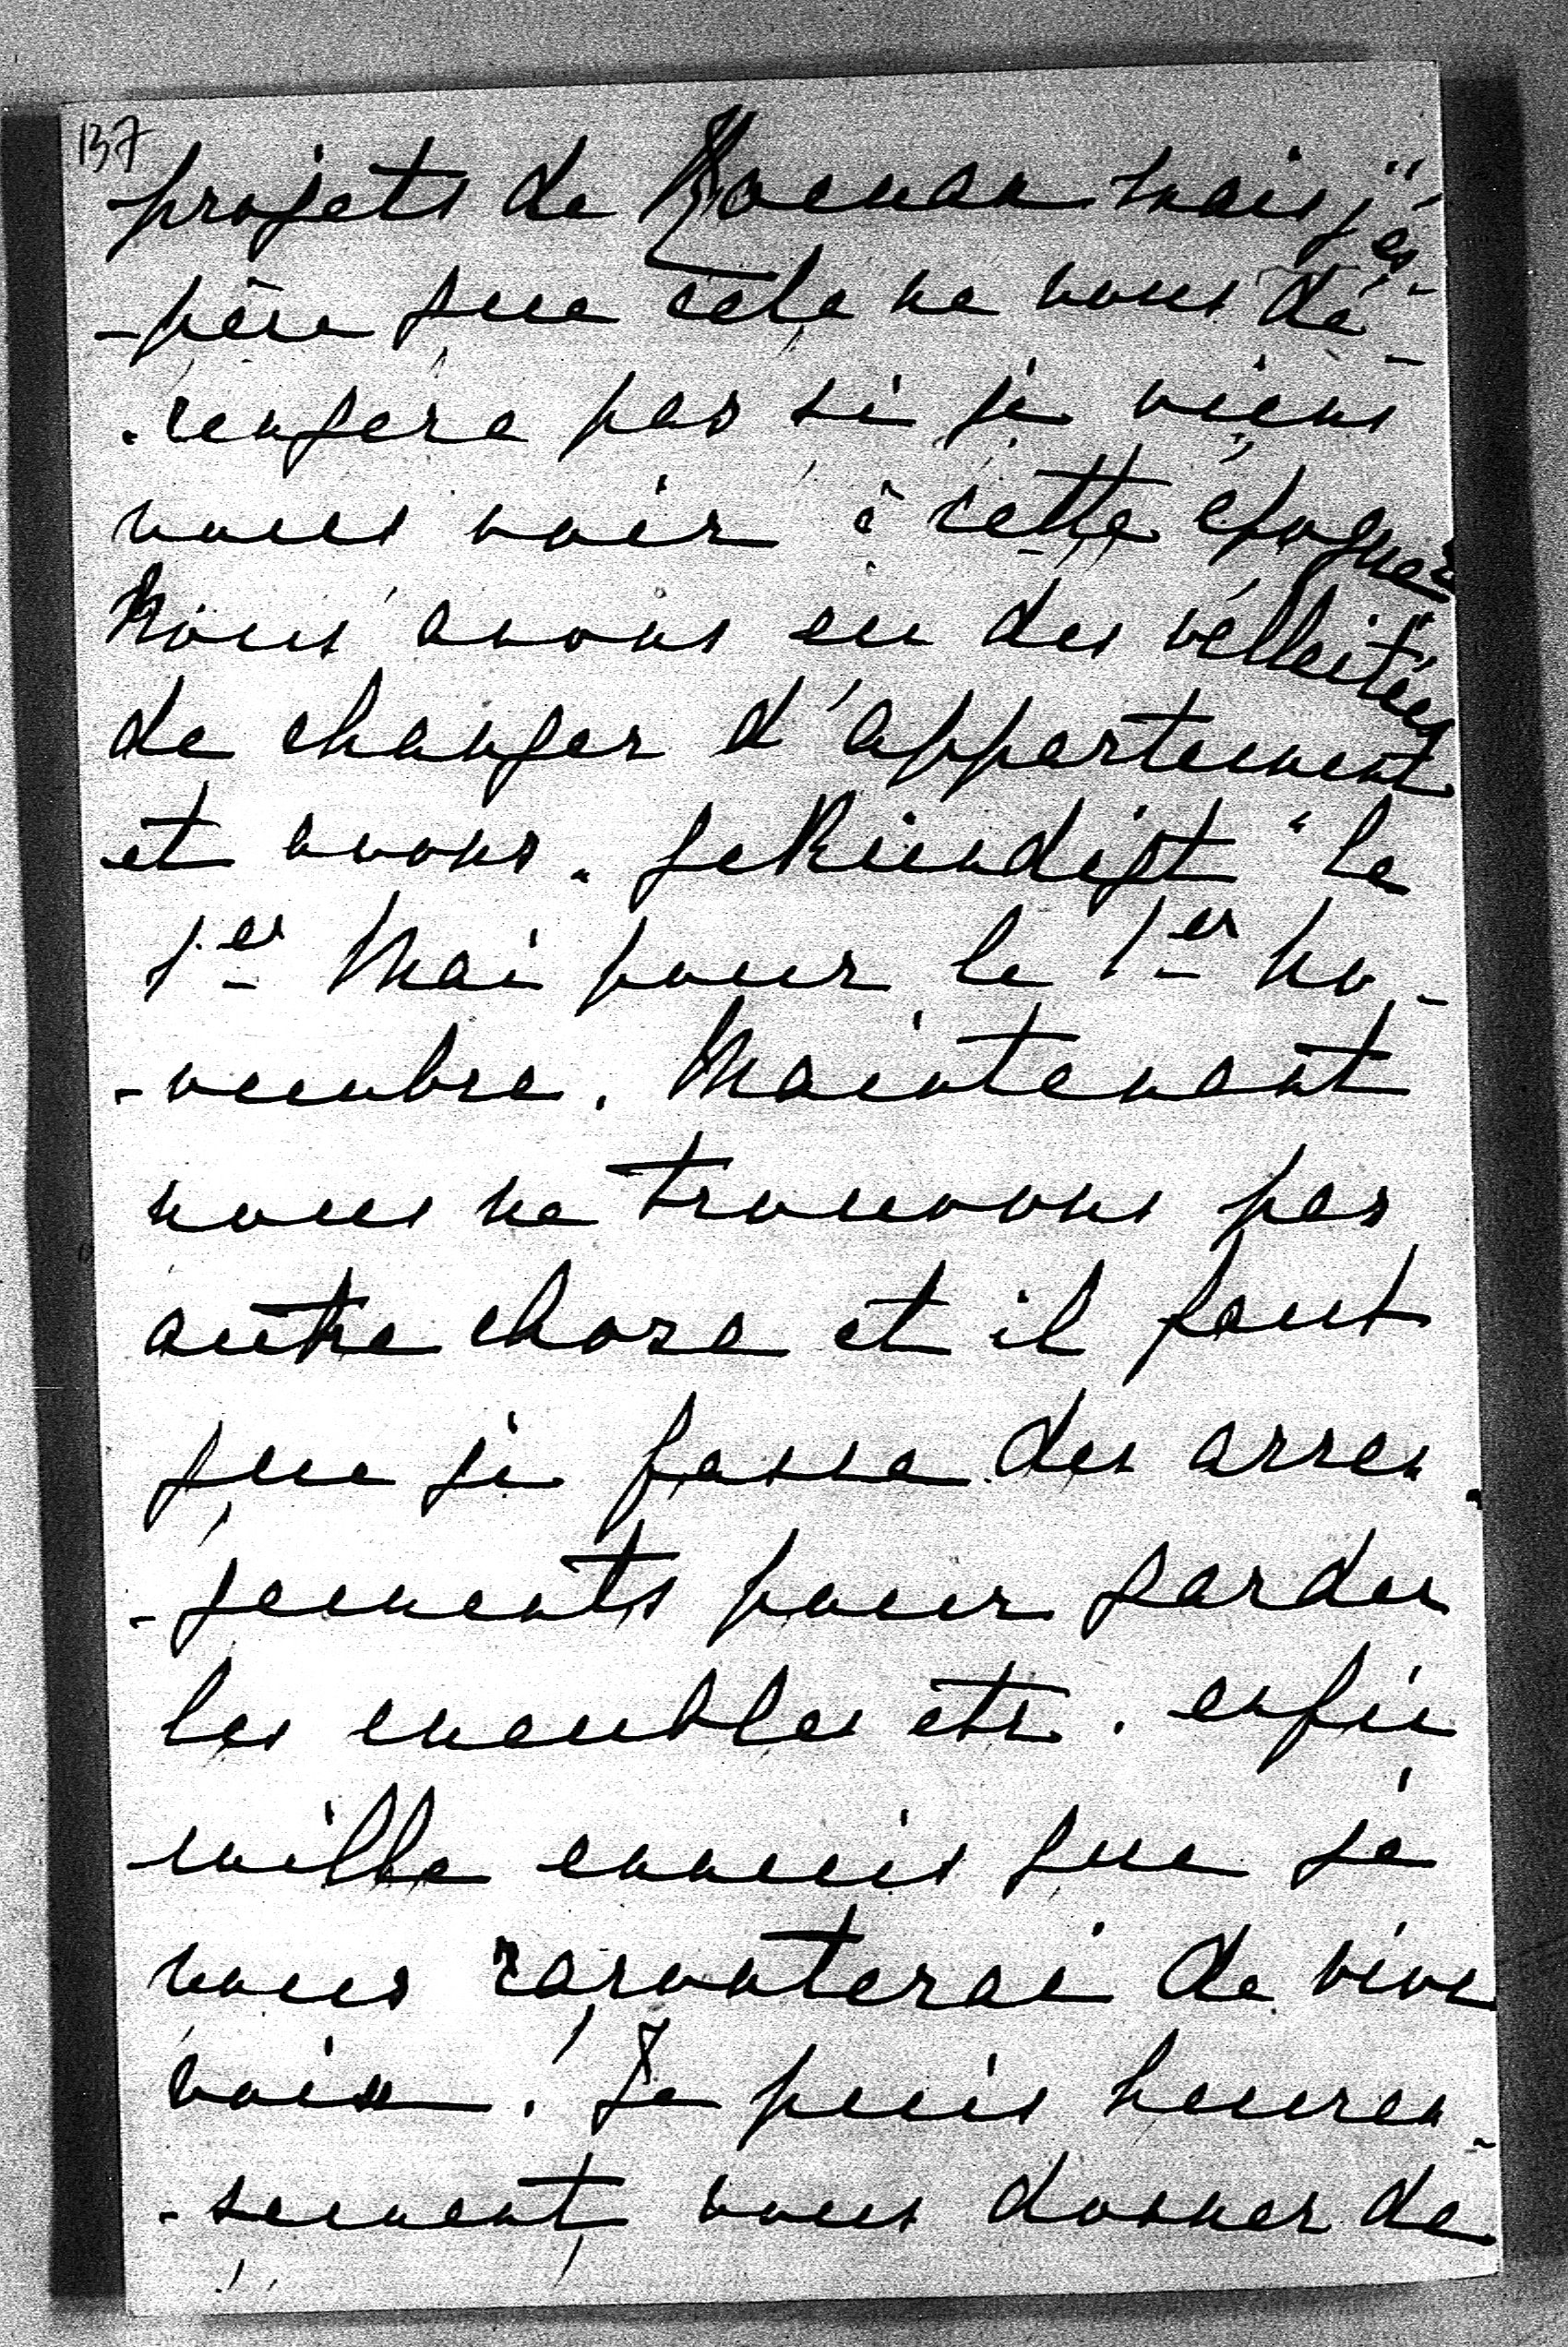 137
projets de Roenan mais j'es-
-père que cela ne vous dé-
-rengera pas si je viens
vous voir à cette époque?
Nous avons eu des velleitées
de changer d'appartement
et avons "gekündigt" le
1er Mai pour le 1er No-
-vembre. Maintenant
nous ne trouvons pas
autre chose et il faut
que je fasse des arran-
-gements pour garder
les meubles etc. enfin
mille ennuis que je
vous raconterai de vive
voix. Je puis heureu-
-sement vous donner de